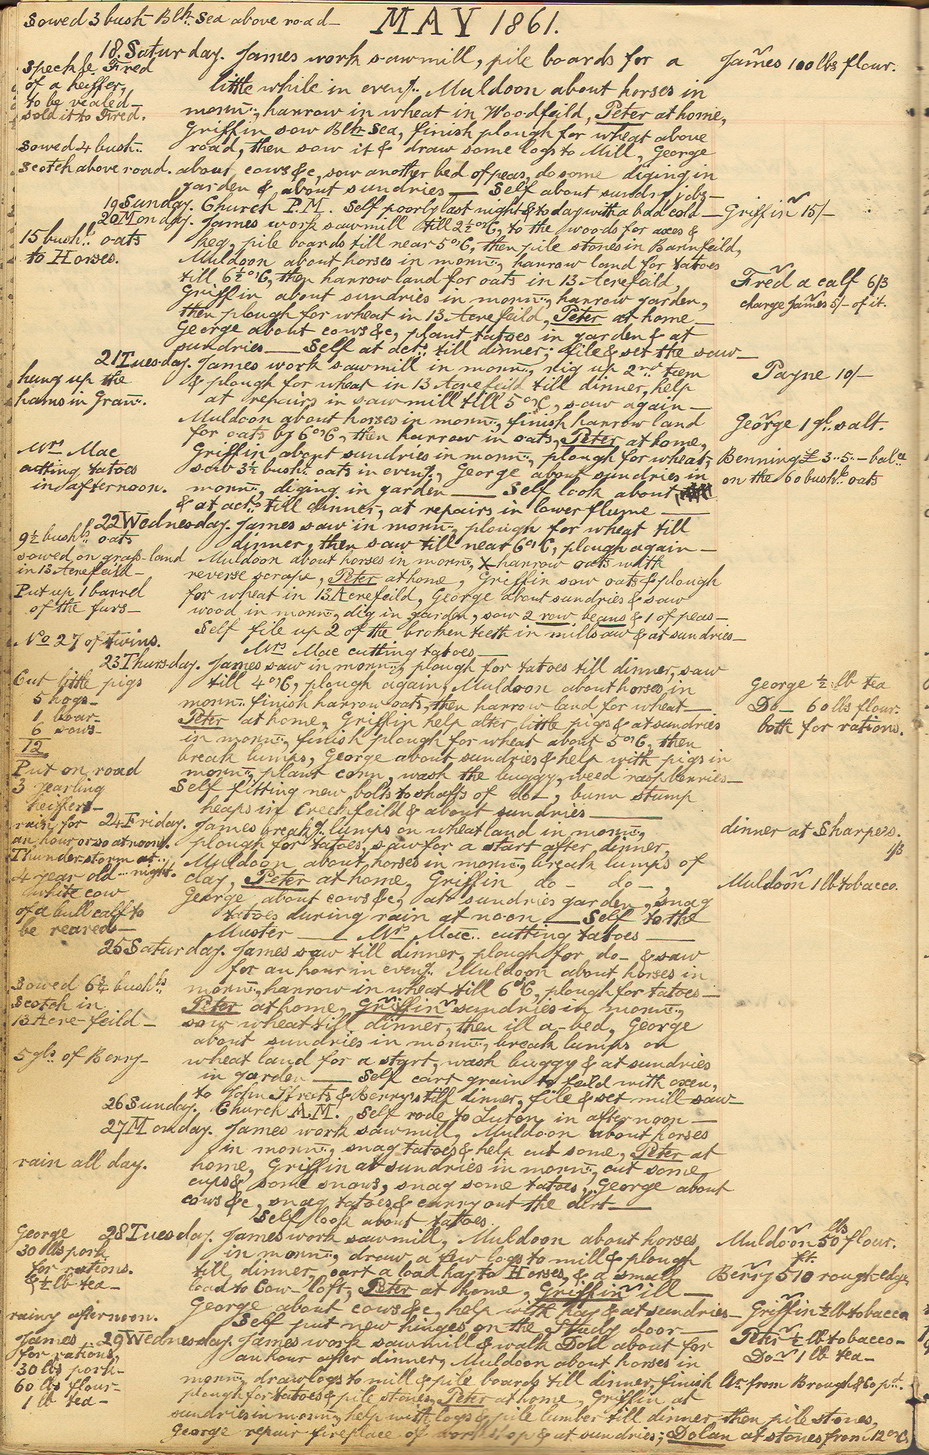 Sowed 3 bush Blk Sea above road — MAY 1861.
18 Saturday. James work sawmill, pile boards for a
James 100 lbs flour.
Speck &c. Fred
of a heiffer,
to be vealed —
sold it to Fred.
little while in eveng. Muldoon about horses in
morng, harrow in wheat in Woodfeild, Peter at home,
Griffin sow Blk Sea, finish plough for wheat above
Sowed 4 bush.
Scotch above road.
road, then sow it & draw some logs to Mill, George
about cows &c, sow another bed of peas, do some diging in
garden & about sundries — Self about sundry jobs —
19 Sunday. Church P.M. Self poorly last night & to day with a bad cold —
Griffin 15/-
20 Monday. James work sawmill till 2½ o'C, to the woods for axes &
15 bushls. oats
to Horses.
heg, pile boards till near 5 o'C, then pile stones in Barnfeild,
Muldoon about horses in morng, harrow land for tatoes
till 6½ o'C, then harrow land for oats in 13 Acrefeild,
Fred a calf 6/3
charge James 5/- of it.
Griffin about sundries in morng, harrow garden,
then plough for wheat in 13 Acrefeild, Peter at home
George about cows &c, plant tatoes in garden & at
sundries — Self at acts. till dinner, file & set the saw —
21 Tuesday. James work sawmill in morng, dig up 2nd
hung up the
hams in Gran.
& plough for wheat in 13 Acrefeild till dinner, help
at repairs in saw mill till 5 o'C, saw again —
Payne 10/-
Muldoon about horses in morng, finish harrow land
for oats by 6 o'C, then harrow in oats, Peter at home,
George 1 gl. salt.
Mrs Mae
cutting tatoes
in afternoon.
Griffin about sundries in morng, plough for wheat,
sow 3½ bush. oats in eveng, George about sundries in
morng diging in garden — Self look about
& at acts. till dinner, at repairs in lower flume —
Benning £3..5.- balce
on the 60 bushls oats
22 Wednesday. James saw in morng, plough for wheat till
9½ bushls. oats
sowed on grass-land
in 13 Acrefeild —
dinner, then saw till near 6 o'C, plough again —
Muldoon about horses in morng, harrow oats with
reverse scrape, Peter at home, Griffin sow oats & plough
Put up 1 barrel
of the furs —
for wheat in 13 Acrefeild, George about sundries & saw
wood in morng, dig in garden, sow 2 row beans & 1 of peas —
Self file up 2 of the broken teeth in mill saw & at sundries —
No 27 of twins.
Mrs Mae cutting tatoes —
23 Thursday. James saw in morng, plough for tatoes till dinner, saw
Cut little pigs
5 hogs —
1 boar —
6 sows —
12
till 4 o'C, plough again, Muldoon about horses in
morng finish harrow oats, then harrow land for wheat —
Peter at home, Griffin help alter little pigs & at sundries
in morng, finish plough for wheat about 5 o'C, then
George ½ lb tea
Do — 60 lbs flour
both for rations.
Put on road
3 yearling
heiffers —
break lumps, George about sundries & help with pigs in
morng, plant corn, wash the buggy, weed raspberries —
Self fitting new bolts to shafts of do —, burn stump
heaps in Creekfeild & about sundries —
24 Friday. James break g lumps on wheat land in morng,
rainy for
an hour or so at noon.
Thunder storm at night.
plough for tatoes, saw for a start after dinner,
Muldoon about horses in morng, break lumps of
clay, Peter at home, Griffin do — do —,
dinner at Sharpe's. 1/3
Muldoon 1 lb tobacco.
4 year old
white cow
of a bull calf to
be reared —
George about cows &c, at sundries garden, snag
tatoes during rain at noon — Self to the
Muster — Mrs Mae. cutting tatoes —
25 Saturday. James saw till dinner, plough for do — & saw
for an hour in eveng. Muldoon about horses in
Sowed 6¾ bushls.
Scotch in
13 Acre-feild —
morng, harrow in wheat till 6 o'C, plough for tatoes —
Peter at home, Griffin sundries in morng,
sow wheat till dinner, then ill a-bed, George
about sundries in morng, break lumps on
5 gls. of Berry —
wheat land for a start, wash buggy & at sundries
in garden — Self cart grain to feild with oxen,
to John Streets & Berry's till dinner, file & set mill saw —
26 Sunday. Church A.M. Self rode to Luton in afternoon —
27 Monday. James work sawmill, Muldoon about horses
rain all day.
in morng, snag tatoes & help cut some, Peter at
home, Griffin at sundries in morng, cut some
cups & some snows, snag some tatoes, George about
cows &c, snag tatoes & carry out the dirt —
Self look about tatoes.
28 Tuesday. James work sawmill, Muldoon about horses
George
30 lbs pork
for rations.
& ½ lb tea —
in morng, draw a few logs to mill & plough
till dinner, cart a load hay to Horses, & a small
load to Cow loft, Peter at home, Griffin ill —
Muldoon 50 lbs flour.
Berry 510 ft. rough edge,
rainy afternoon.
George about cows &c, help with hay & at sundries —
Griffin ½ lb tobacco
Self put new hinges on the Study door —
29 Wednesday. James work sawmill & walk Doll about for
James
for rations,
30 lbs pork —
60 lbs flour —
1 lb tea —
Peter ½ lb tobacco —
Do — 1 lb tea —
an hour after dinner, Muldoon about horses in
morng, draw logs to mill & pile boards till dinner, finish
plough for tatoes & pile stones, Peter at home, Griffin at
sundries in morng, help with logs & pile lumber till dinner, then pile stones,
George repair fireplace of workshop & at sundries; Dolan at stones from 12 o'C,